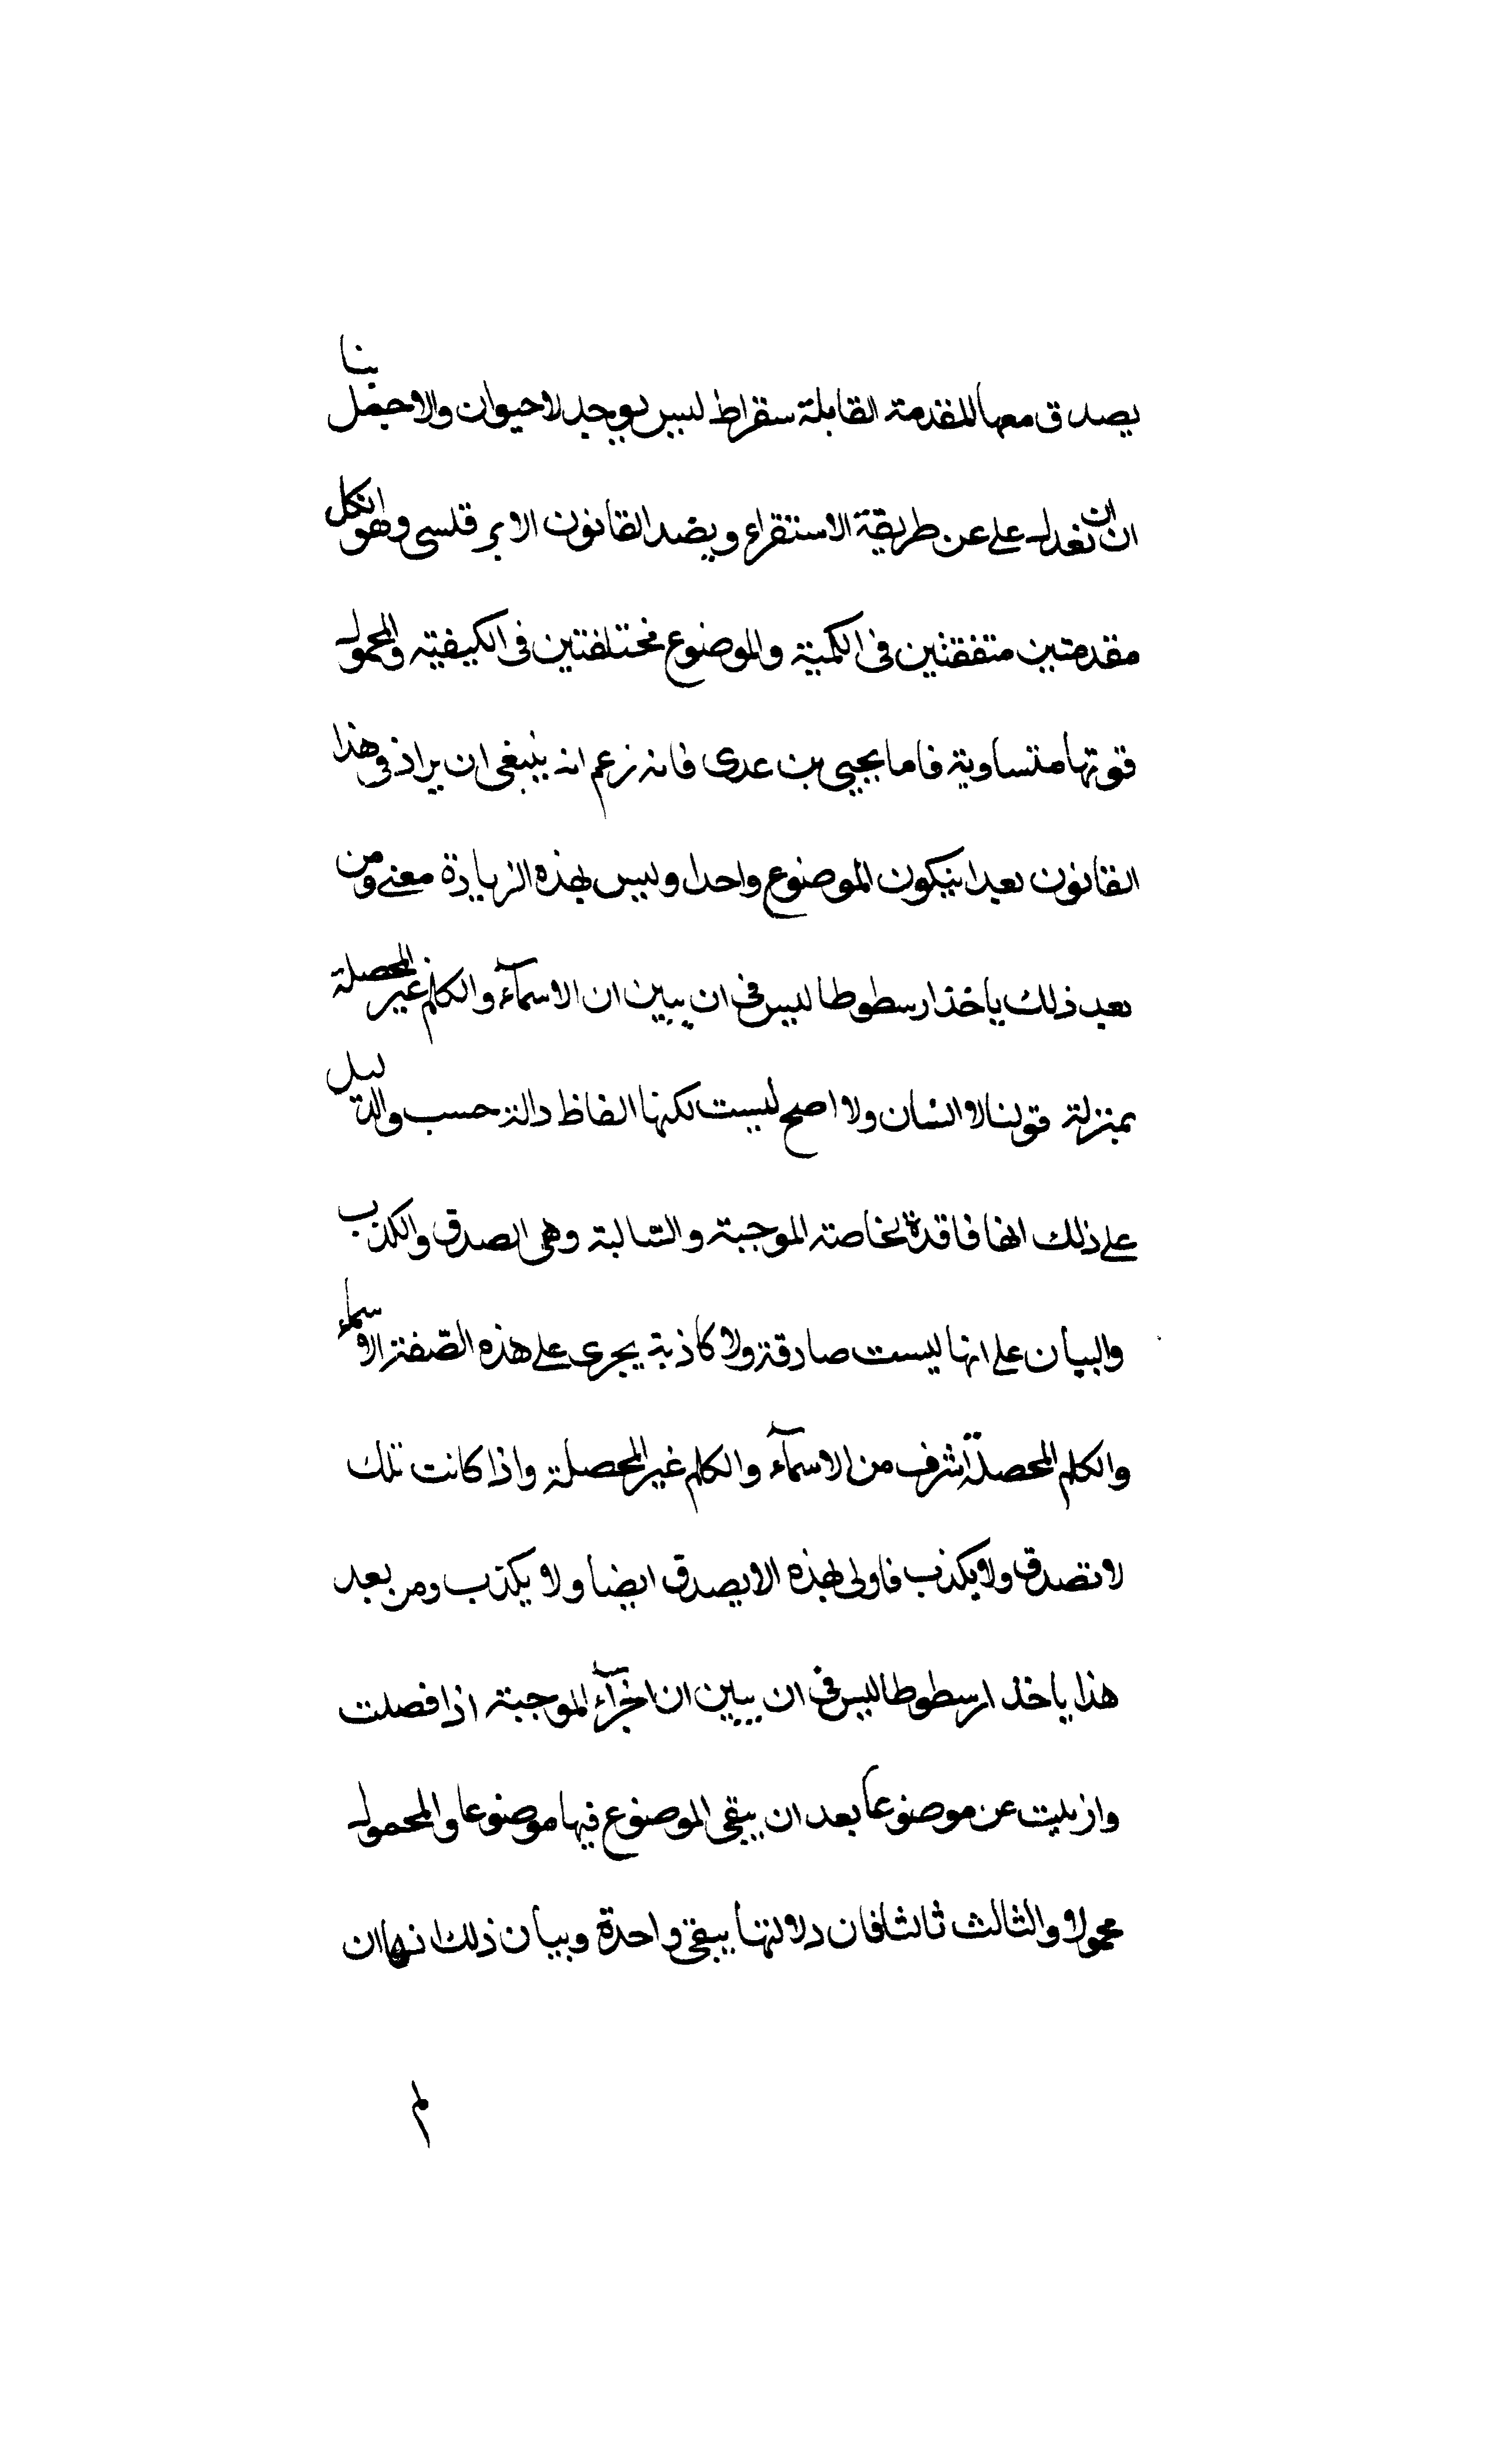 يصدق معها المقدمة القابلة سقراط ليس يوجد لا حيوان والاجمل بنا
ان ان نعدل على عن طريقة الاستقراء ويضد القانون الابرقلسى وهو ان كل
مقدمتين متفقتين فى الكمية والموضوع مختلفتين فى الكيفية والمحمول
قوتها متساوية فاما يحيى بن عدى فانه زعم انه ينبغى ان يراد فى هذا
القانون بعد ان يكون الموضوع واحدا وليس لهذه الزيادة معنى ومن
بعد ذلك ياخذ ارسطوطاليس فى ان يبين ان الاسمآء والكلم غير المحصلة
بمنزلة قولنا لا انسان ولا اصح ليست لكنها الفاظ دالة حسب والدليل
على ذلك انها فاقدة لخاصة الموجبة والسّالبة وهى الصدق والكذب
والبيان على انها ليست صادقة ولا كاذبة يجرى على هذه الصّفة الاسماء
والكلم المحصلة اشرف من الاسمآء والكلم غير المحصلة واذا كانت تلك
لا تصدق ولا يكذب فاولى لهذه الا يصدق ايضا ولا يكذب ومن بعد
هذا ياخذ ارسطوطاليس فى ان يبين ان اجزآء الموجبة اذا فصلت
وازيلت عن موضوعا بعد ان يبقى الموضوع فيها موضوعا والمحمول
محمولا والثالث ثالثا فان دلالتها يبقى واحدة وبيان ذلك انها ان
لم